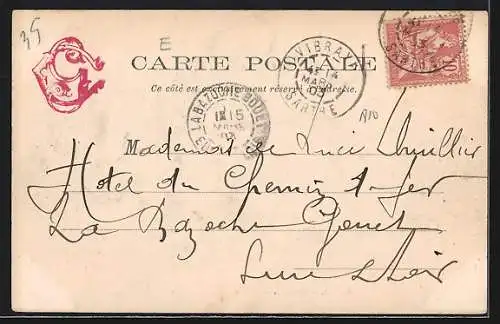 35
E
CARTE POSTALE
Ce côté est exclusivement réservé à l'adresse.
VIBRAYE
MARS
SARTHE
LA BAZOCHE-GOUET
15
MARS
M
Mademoiselle
Hôtel du Chemin de fer
La Bazoche Gouet
Eure & Loir